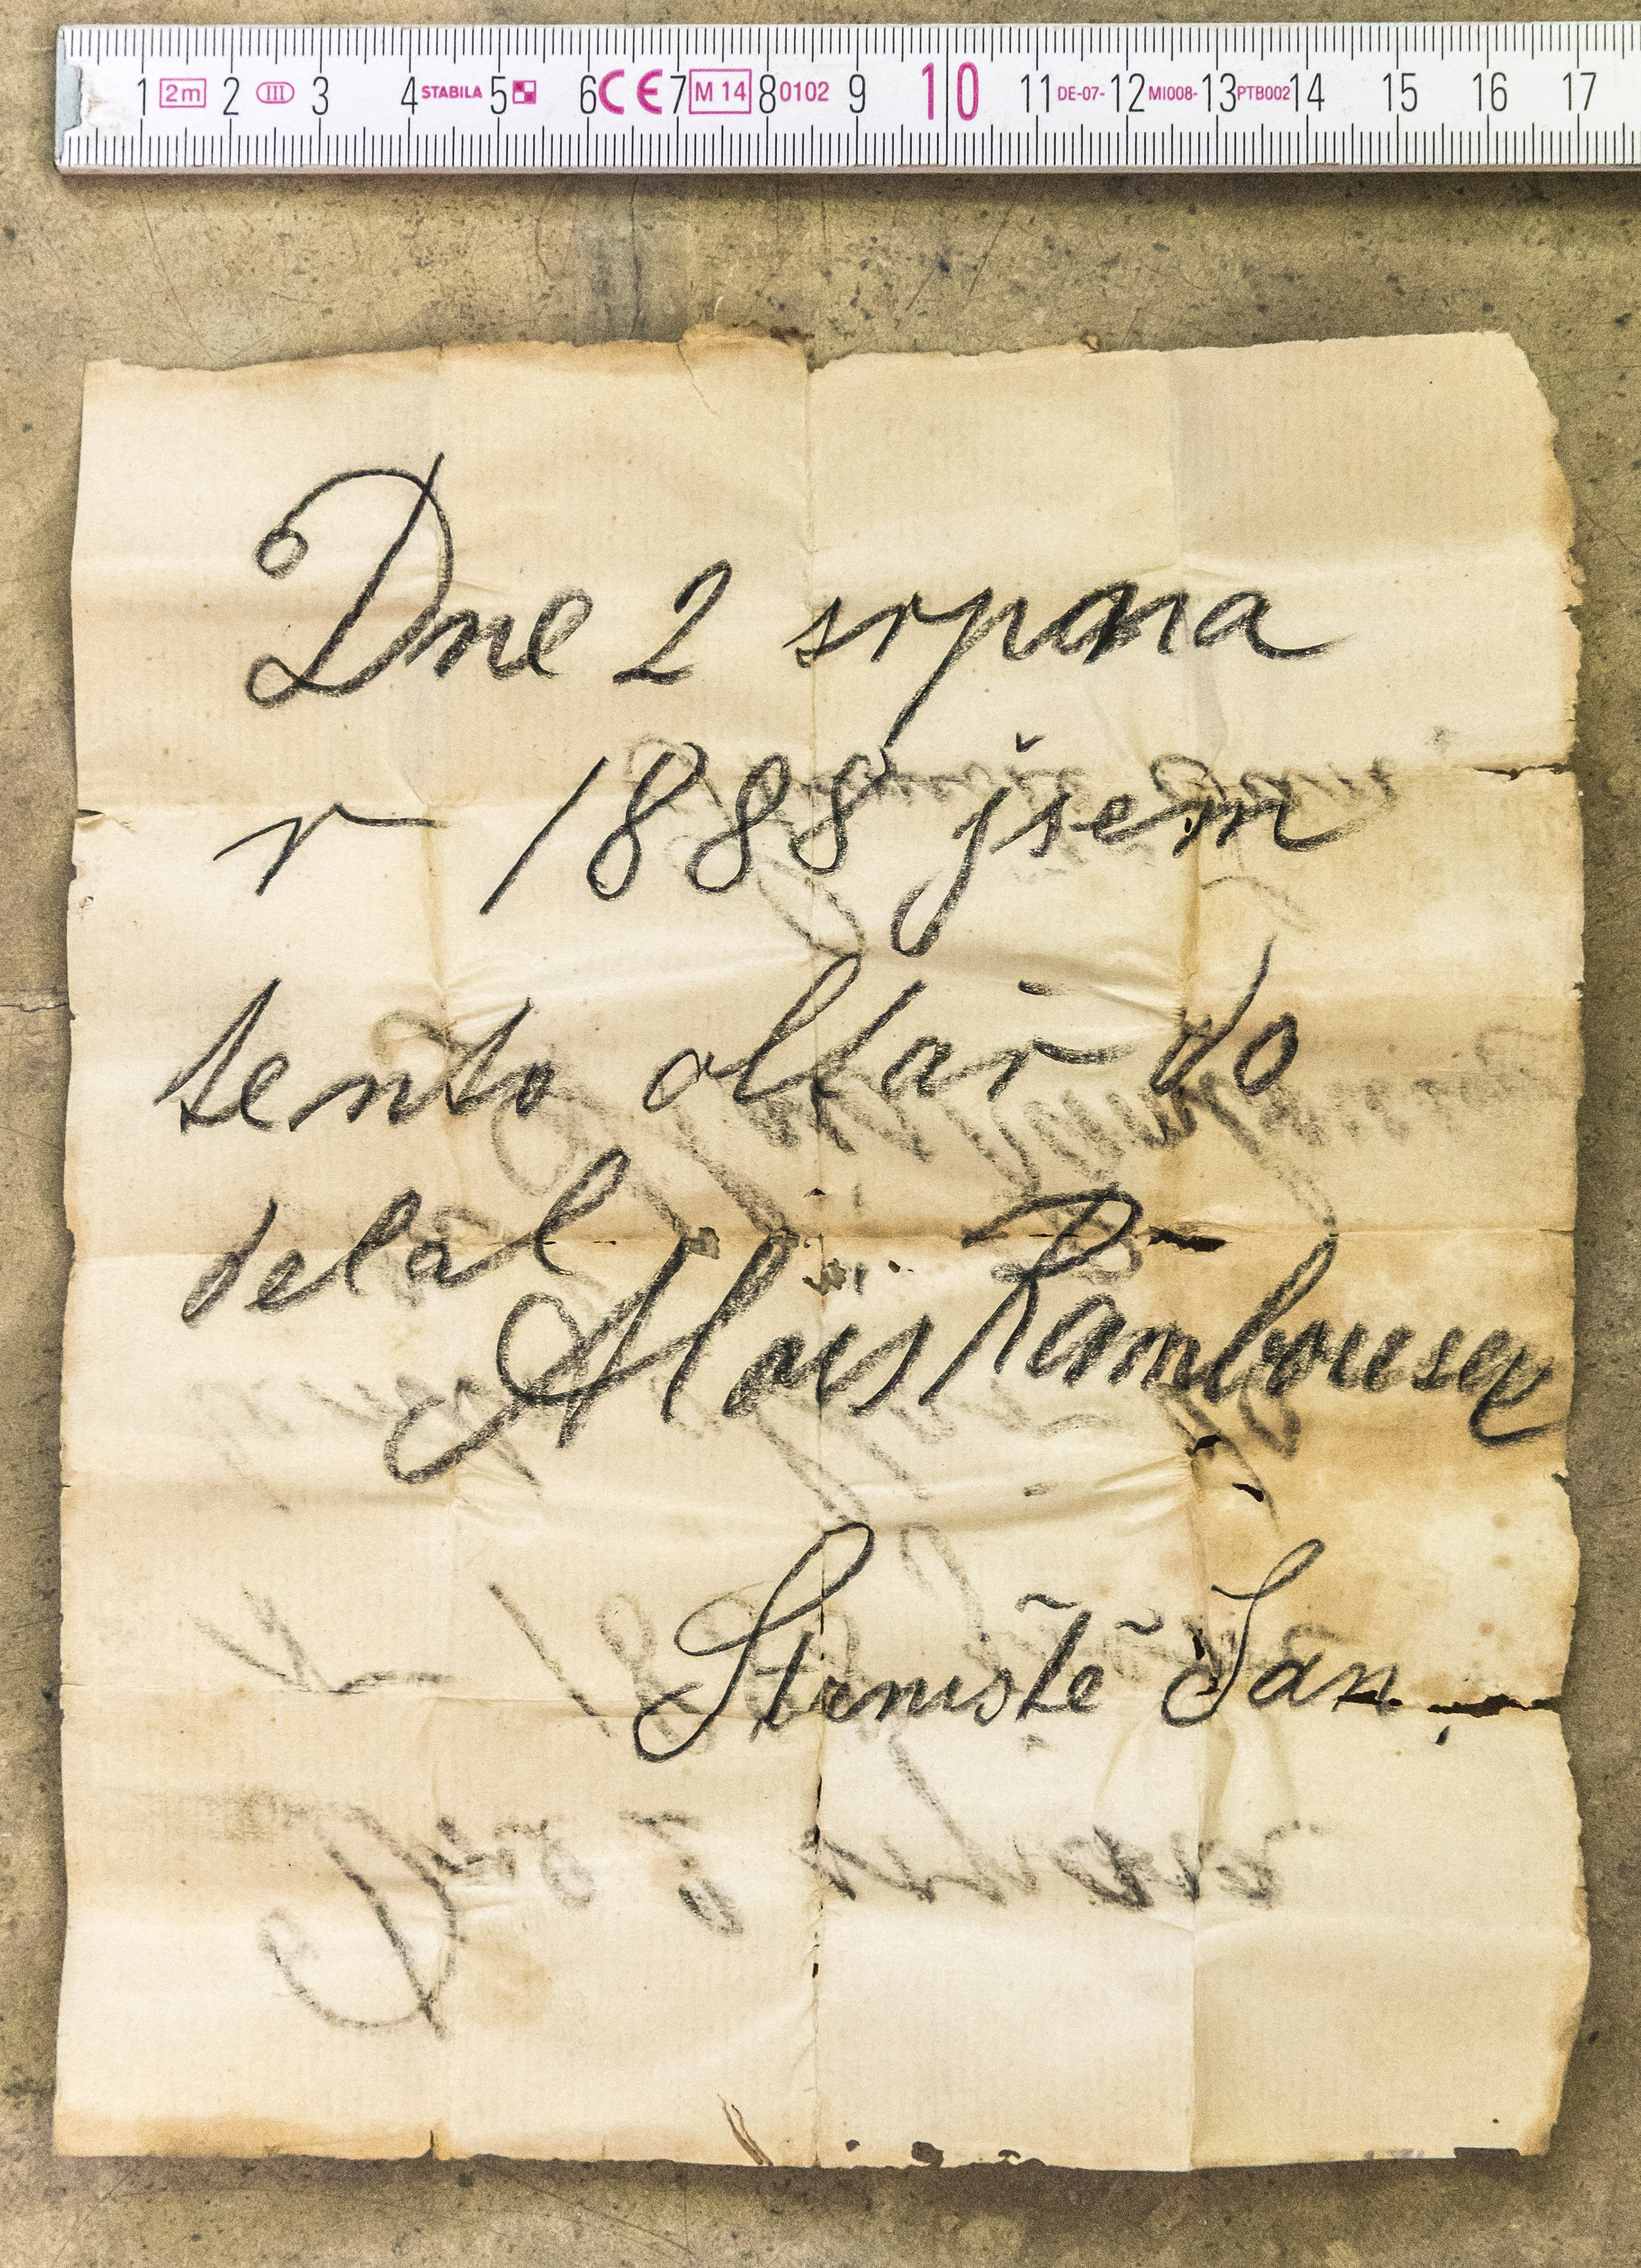 1 2m 2 III 3 4 STABILA 5 6 CE 7 M 14 8 0102 9 10 11 DE-07- 12 MI008- 13 PTB002 14 15 16 17
Dne 2 srpna
r 1888 jšem
tento oltař do
delal
Alois Kambousek
Stiniště Jan